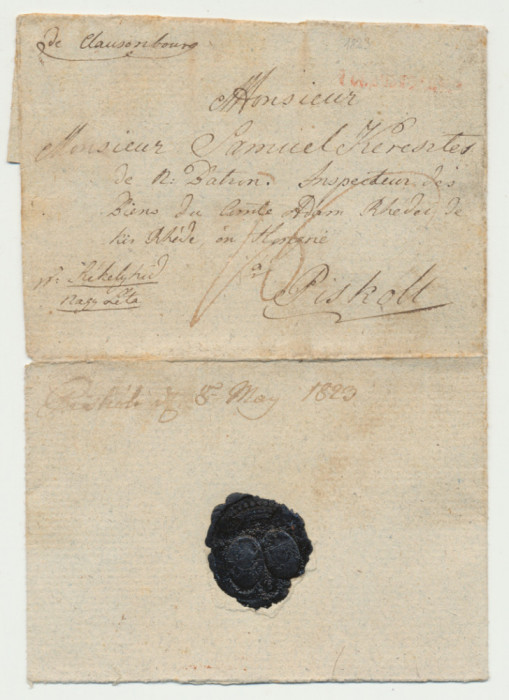 de Clausenbourg
1823
Monsieur
Monsieur Samuel Keresztes
de N: Inspecteur des
Biens du Comte Adam Rhédei de
kis Rhéde, en Hongrie
Székelyhid
Nagy Léta
pr Piskolt
8 May 1823